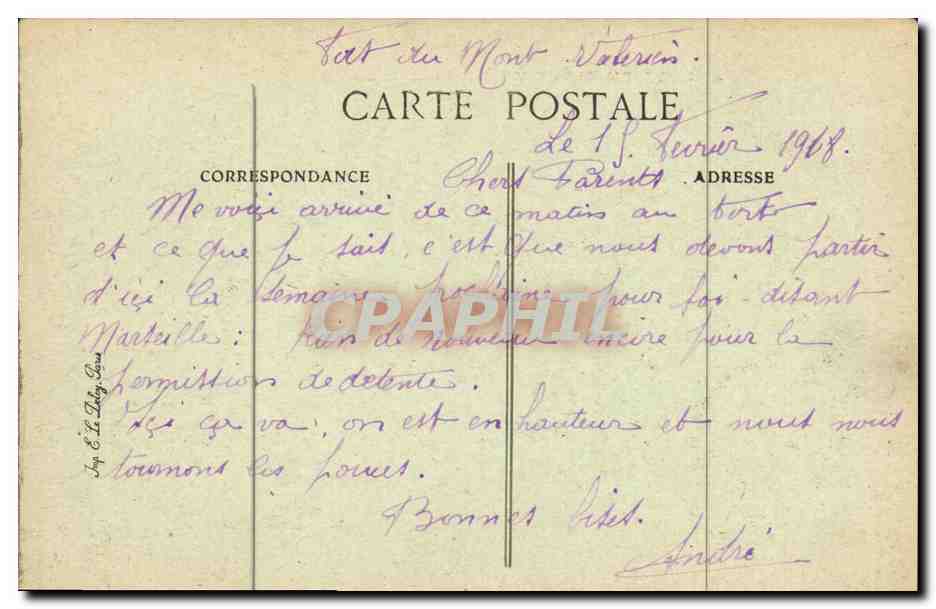 Fort du Mont Valerien.
CARTE POSTALE
Le 15 Fevrier 1918.
CORRESPONDANCE
Chers Parents
ADRESSE
Me voiçi arrivé de ce matin au Fort
et ce que je sait, c'est que nous devons partir
d'içi la semaine prochaine pour soi-disant
Marseille : Rien de nouveau encore pour la
permission de detente.
Içi ça va, on est en hauteur et nous nous
tournons les pouces.
Bonnes bises.
André
Imp. E. Le Deley, Paris
CPAPHIL